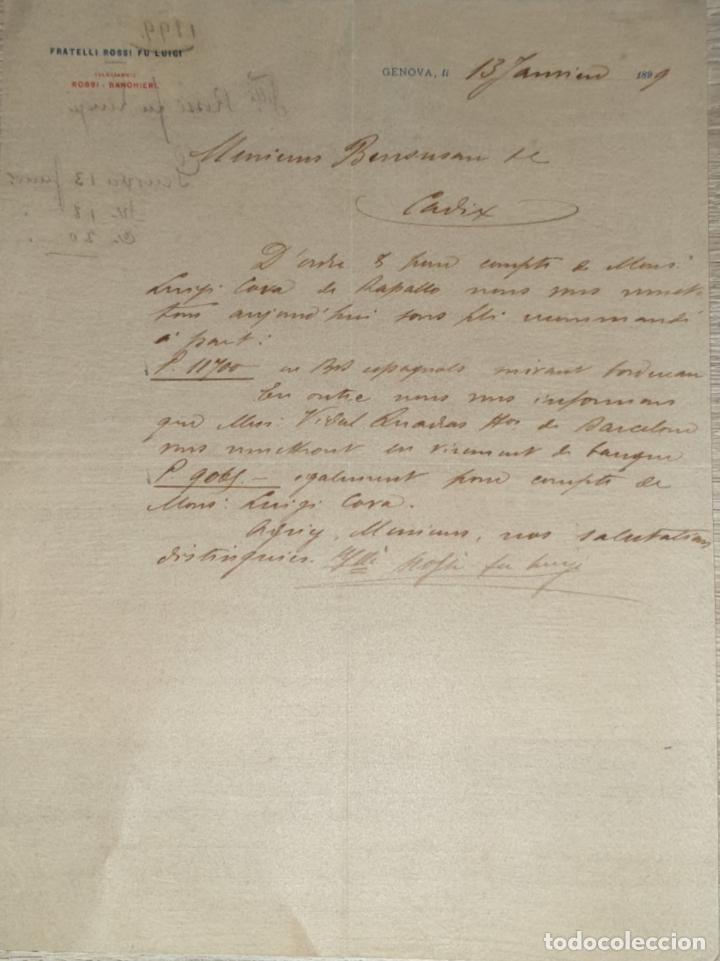 FRATELLI ROSSI FU LUIGI
ROSSI - BANCHIERI
GENOVA, li 13 Janvier 1899
Messieurs Bensusan &c
Cadix
D'ordre & pour compte de Mons:
Luigi Cova de Rapallo nous vous remet-
tons aujourd'hui sous pli recommandé
à part:
P. 11700 en Bts espagnols suivant bordereau
En outre nous vous informons
que Mess: Vidal Quadras Hos de Barcelone
vous remettront en virement de banque
P 9065.- egalement pour compte de
Mons: Luigi Cova.
Agréez, Messieurs, nos salutations
distinguées. Flli Rossi fu Luigi
1899.
Flli Rossi fu Luigi
Genova 13
18
20
todocoleccion
todocoleccion.net